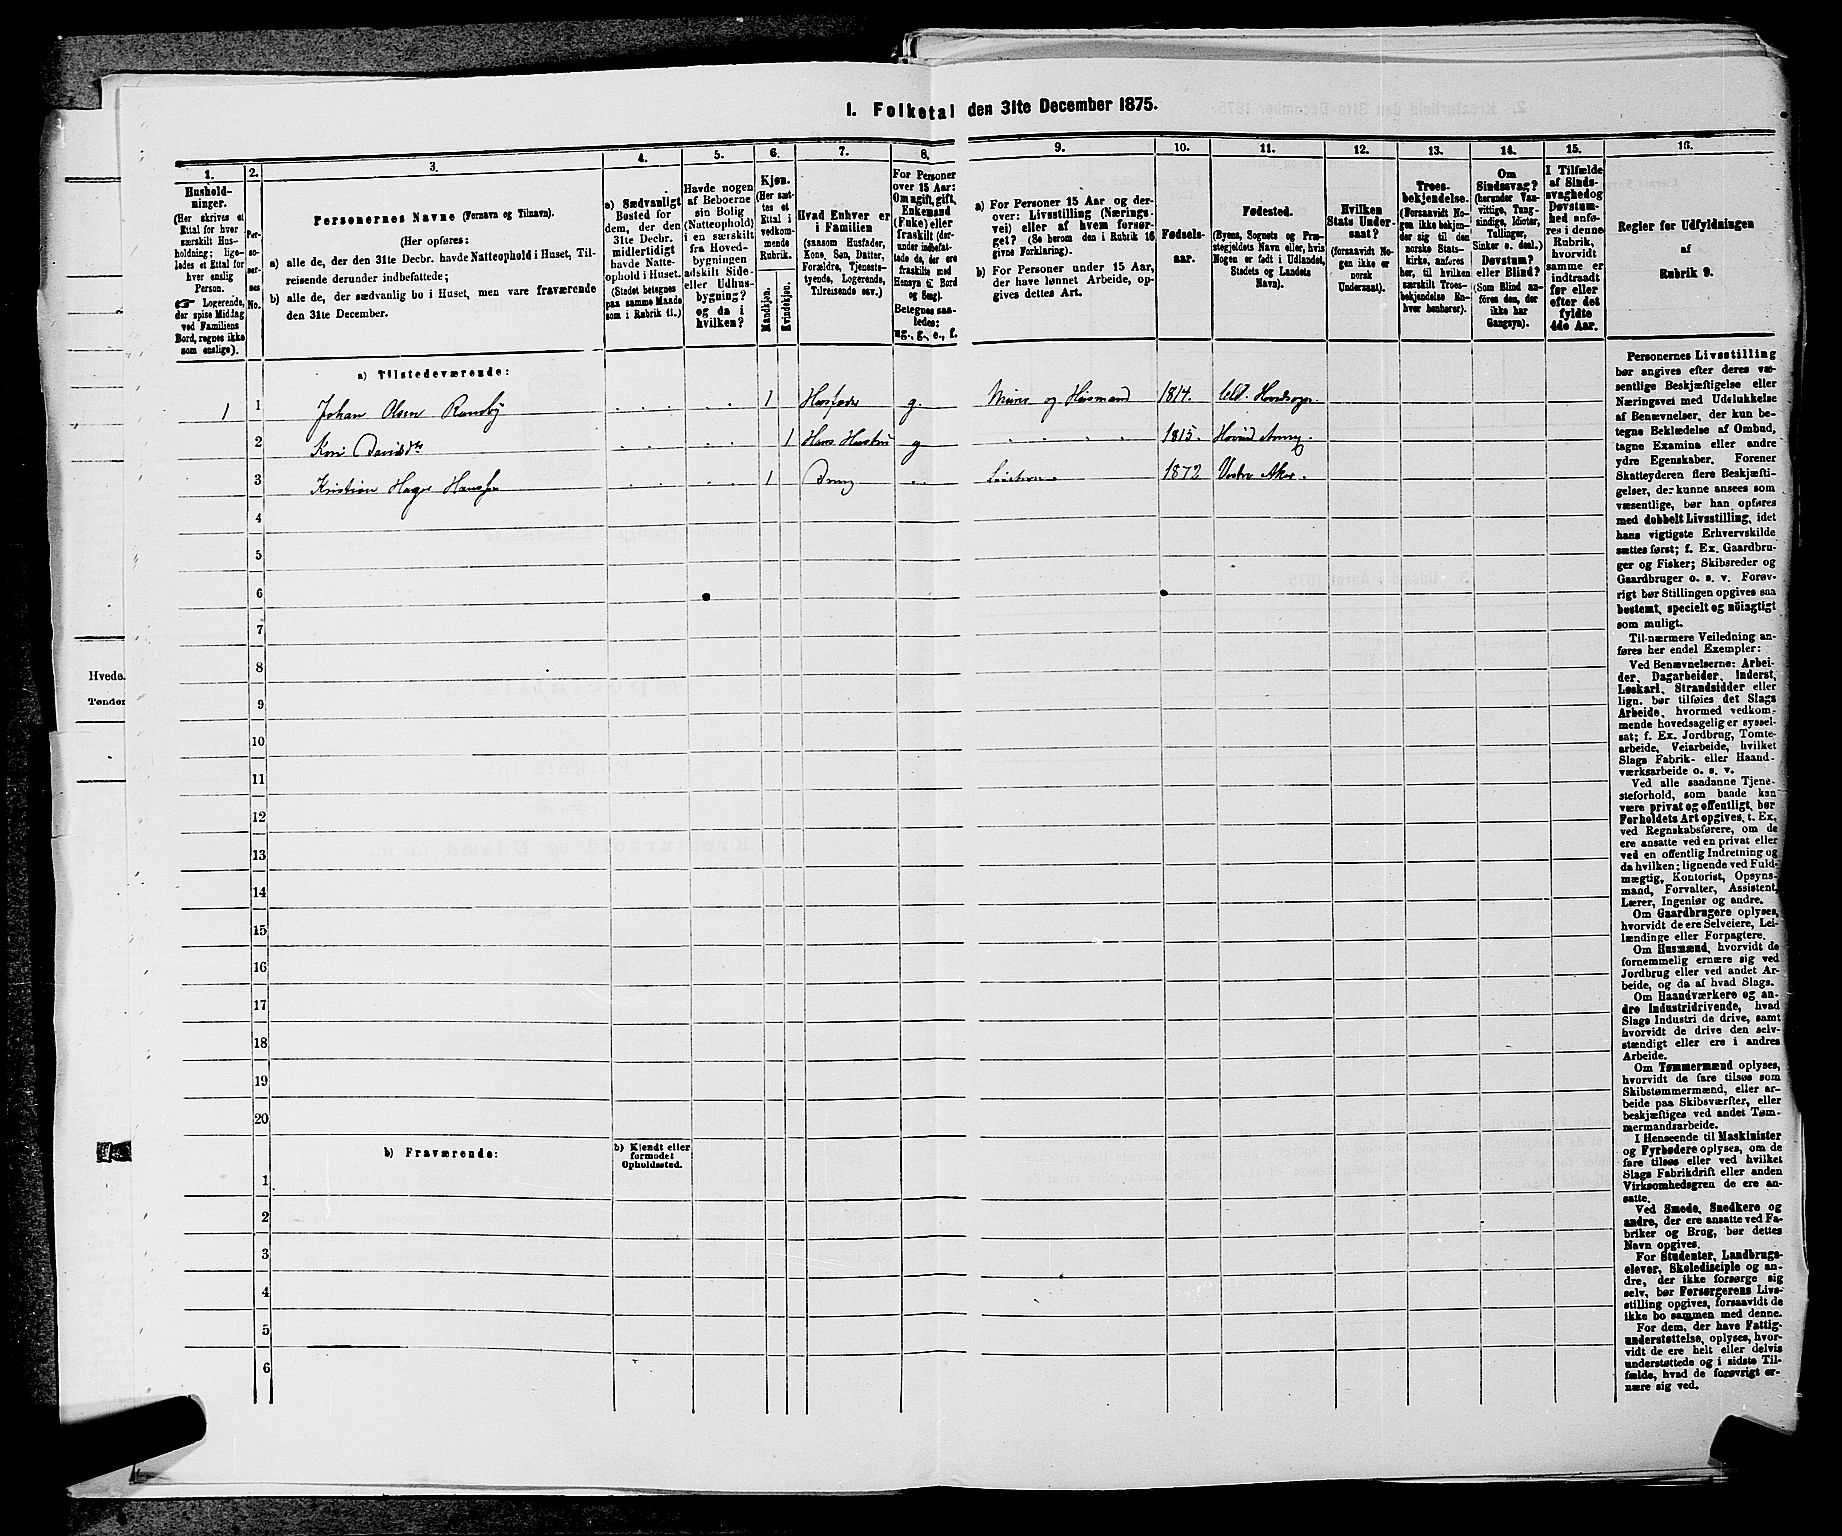 1. Folketal den 31te December 1875.
1.
Hushold-
ninger.
(Her skrives et
Ettal for hver
særskilt Hus-
holdning; lige-
ledes et Ettal for
hver enslig
Person.
Logerende,
der spise Middag
ved Familiens
Bord, regnes ikke
som enslige).
2.
Per-
so-
ner-
nes
No.
3.
Personernes Navne (Fornavn og Tilnavn).
(Her opføres:
a) alle de, der den 31te Decbr. havde Natteophold i Huset, Til-
reisende derunder indbefattede;
b) alle de, der sædvanlig bo i Huset, men vare fraværende
den 31te December.
4.
a) Sædvanligt
Bosted for
dem, der den
31te Decbr.
midlertidigt
havde Natte-
ophold i Huset.
(Stedet betegnes
paa samme Maade
som i Rubrik 11.)
5.
Havde nogen
af Beboerne
sin Bolig
(Natteophold)
i en særskilt
fra Hoved-
bygningen
adskilt Side-
eller Udhus-
bygning?
og da i
hvilken?
6.
Kjøn.
(Her sæt-
tes et
Ettal i
vedkom-
mende
Rubrik.
Mandkjøn.
Kvindekjøn.
7.
Hvad Enhver er
i Familien
(saasom Husfader,
Kone, Søn, Datter,
Forældre, Tjeneste-
tyende, Logerende,
Tilreisende osv.)
8.
For Personer
over 15 Aar:
Om ugift, gift,
Enkemand
(Enke) eller
fraskilt (der-
under indbefat-
tede de, der ere
fraskilte med
Hensyn til Bord
og Seng).
Betegnes saa-
ledes:
ug., g., e., f.
9.
a) For Personer 15 Aar og der-
over: Livsstilling (Nærings-
vei) eller af hvem forsør-
get? (Se herom den i Rubrik 16
givne Forklaring).
b) For Personer under 15 Aar,
der have lønnet Arbeide, op-
gives dettes Art.
10.
Fødsels-
aar.
11.
Fødested.
(Byens, Sognets og Præ-
stegjeldets Navn eller, hvis
Nogen er født i Udlandet,
Stedets og Landets
Navn).
12.
Hvilken
Stats Under-
saat?
(forsaavidt No-
gen ikke er
norsk
Undersaat).
13.
Troes-
bekjendelse.
(Forsaavidt No-
gen ikke bekjen-
der sig til den
norske Stats-
kirke, anføres
her, til hvilken
særskilt Troes-
bekjendelse En-
hver henhører).
14.
Om
Sindssvag?
(herunder Van-
vittige, Tung-
sindige, Idioter,
Tullinger,
Sinker o. desl.)
Døvstum?
eller Blind?
(Som Blind an-
føres den, der
ikke har
Gangsyn).
15.
I Tilfælde
af Sinds-
svaghed og
Døvstum-
hed anfø-
res i denne
Rubrik,
hvorvidt
samme er
indtraadt
før eller
efter det
fyldte
4de Aar.
16.
Regler for Udfyldningen
af
Rubrik 9.
a) Tilstedeværende:
1 1 Johan Olsen 1 g. og Husmand 1814.
2 Kari Davidsdtr 1 Hans Hustru g 1815.
3 Kristian Hansen 1 1872 Vestre Aker.
4
5
6
7
8
9
10
11
12
13
14
15
16
17
18
19
20
b) Fraværende:
b) Kjendt eller
formodet
Opholdssted.
1
2
3
4
5
6
Personernes Livsstilling
bør angives efter deres væ-
sentlige Beskjæftigelse eller
Næringsvei med Udelukkelse
af Benævnelser, der kun be-
tegne Beklædelse af Ombud,
tagne Examina eller andre
ydre Egenskaber. Forener
Skatteyderen flere Beskjæfti-
gelser, der kunne ansees som
væsentlige, bør han opføres
med dobbelt Livsstilling, idet
hans vigtigste Erhvervskilde
sættes først; f. Ex. Gaardbru-
ger og Fisker; Skibsreder og
Gaardbruger o. s. v. Forøv-
rigt bør Stillingen opgives saa
bestemt, specielt og nöiagtigt
som muligt.
Til nærmere Veiledning an-
føres her endel Exempler:
Ved Benævnelserne: Arbei-
der, Dagarbeider, Inderst,
Løskarl, Strandsidder eller
lign. bør tilføies det Slags
Arbeide, hvormed vedkom-
mende hovedsagelig er syssel-
sat; f. Ex. Jordbrug, Tomte-
arbeide, Veiarbeide, hvilket
Slags Fabrik- eller Haand-
værksarbeide o. s. v.
Ved alle saadanne Tjene-
steforhold, som baade kan
være privat og offentligt, bør
Forholdets Art opgives, t. Ex.
ved Regnskabsførere, om de
ere ansatte ved en privat eller
ved en offentlig Indretning og
da hvilken; lignende ved Fuld-
mægtig, Kontorist, Opsyns-
mand, Forvalter, Assistent,
Lærer, Ingeniør og andre.
Om Gaardbrugere oplyses,
hvorvidt de ere Selveiere, Lei-
lændinge eller Forpagtere.
Om Husmænd, hvorvidt de
fornemmelig ernære sig ved
Jordbrug eller ved andet Ar-
beide, og da af hvad Slags.
Om Haandværkere og an-
dre Industridrivende, hvad
Slags Industri de drive, samt
hvorvidt de drive den selv-
stændigt eller ere i andres
Arbeide.
Om Tømmermænd oplyses,
hvorvidt de fare tilsøs som
Skibstømmermænd, eller ar-
beide paa Skibsværfter, eller
beskjæftiges ved andet Tøm-
mermandsarbeide.
I Henseende til Maskinister
og Fyrbødere oplyses, om de
fare tilsøs eller ved hvilket
Slags Fabrikdrift eller anden
Virksomhedsgren de ere an-
satte.
Ved Smede, Snedkere og
andre, der ere ansatte ved Fa-
briker og Brug, bør dettes
Navn opgives.
For Studenter, Landbrugs-
elever, Skoledisciple og an-
dre, der ikke forsørge sig
selv, bør Forsørgerens Livs-
stilling opgives, forsaavidt de
ikke bo sammen med denne.
For dem, der have Fattig-
understøttelse, oplyses, hvor-
vidt de ere helt eller delvis
understøttede og i sidste Til-
fælde, hvad de forøvrigt er-
nære sig ved.
Hvede.
Tønder